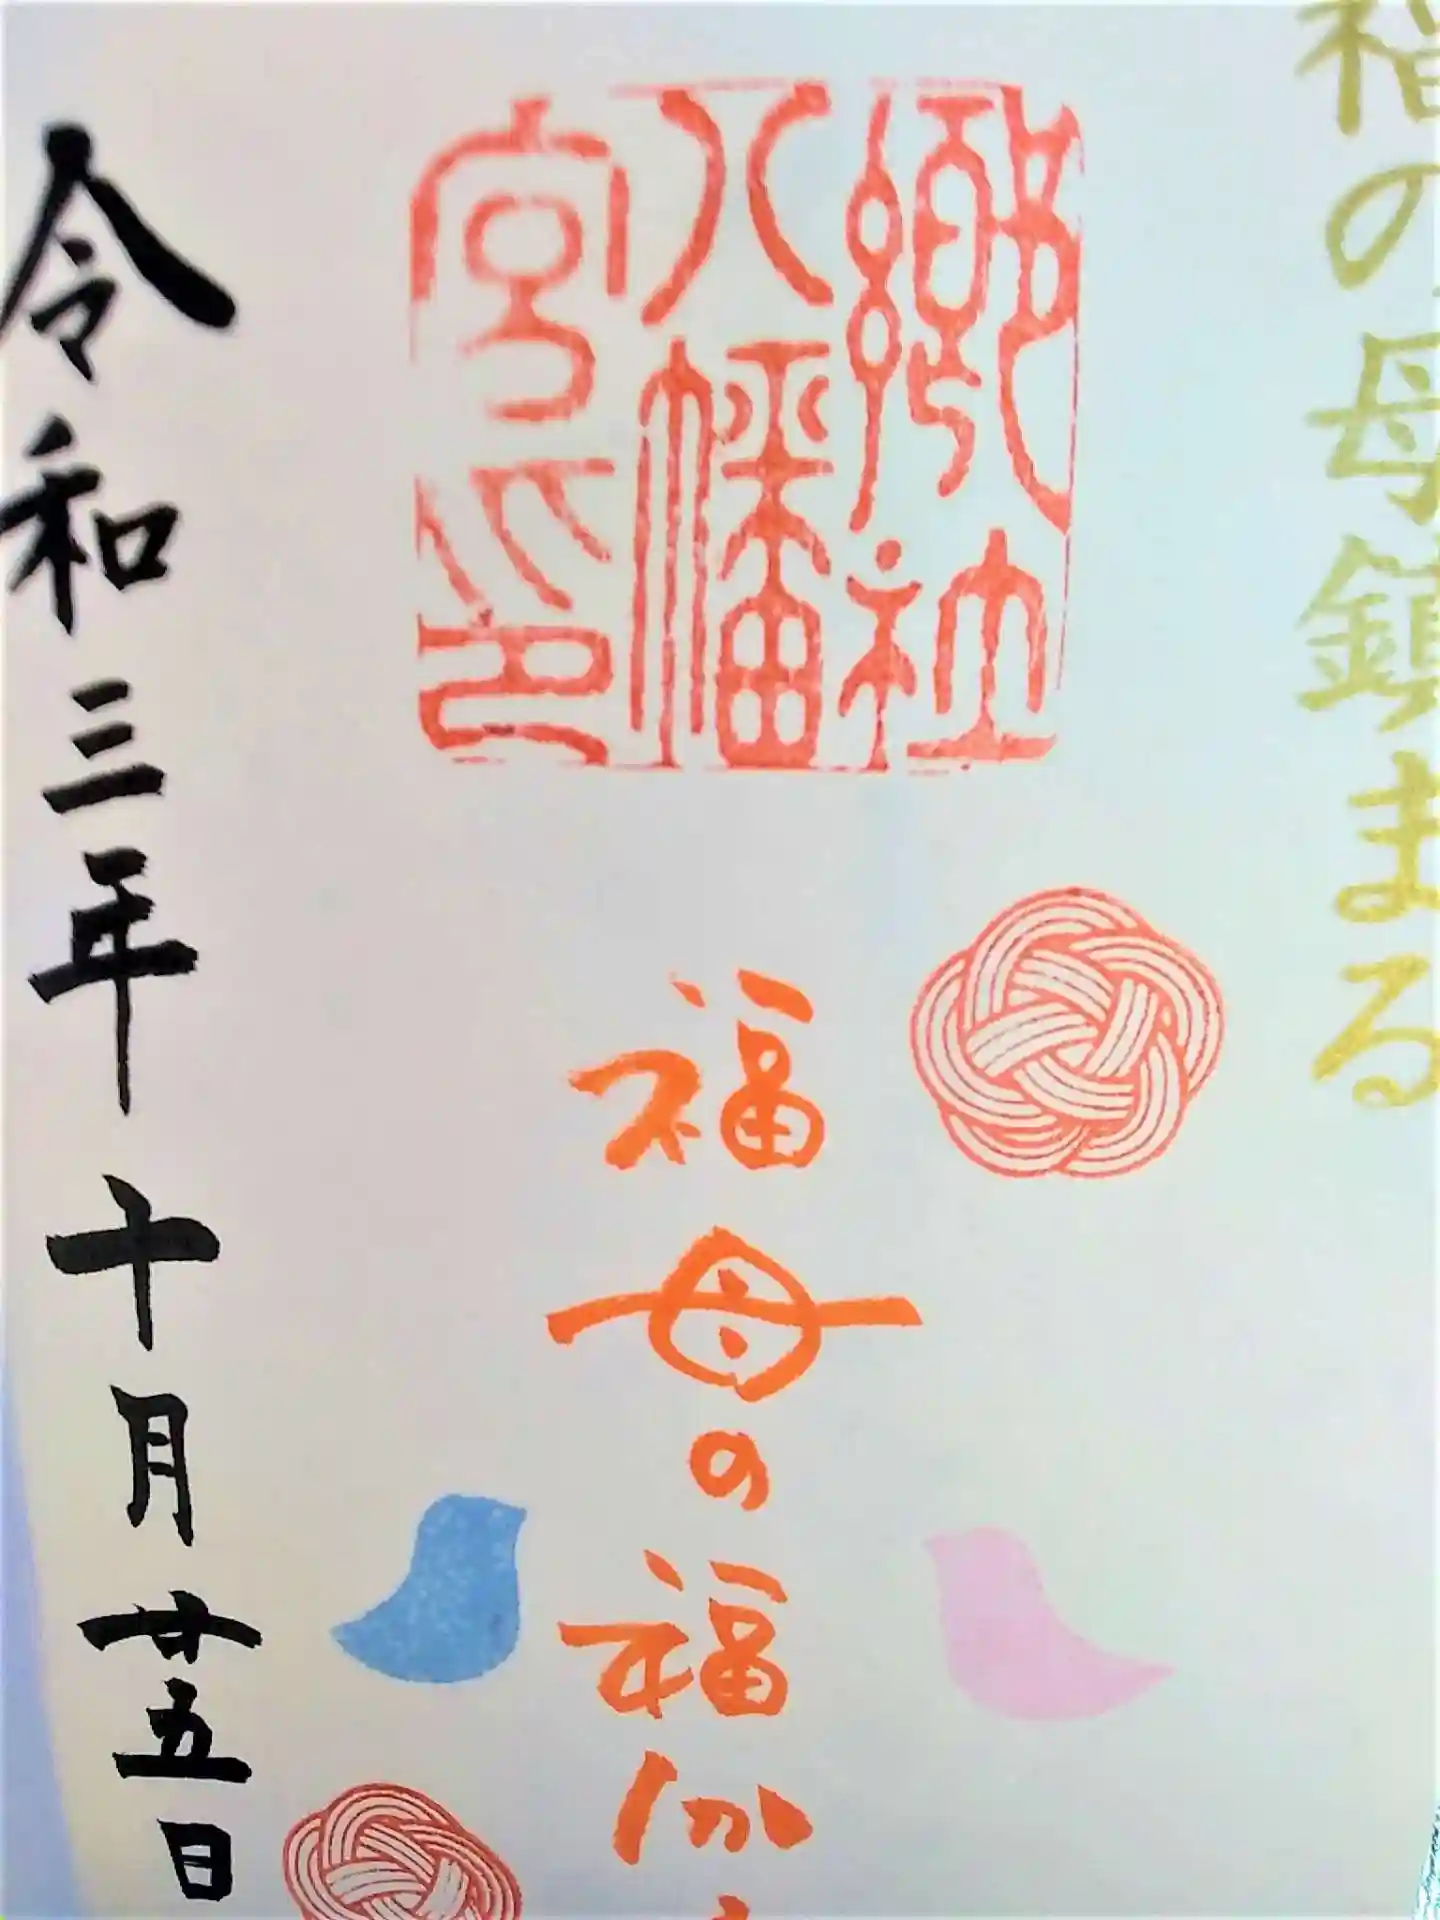 の母鎮まる
郷社
八幡
宮印
福母の福
令和三年十月廿五日